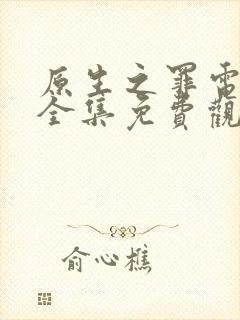 原生之罪電
全集免費觀
俞心樵